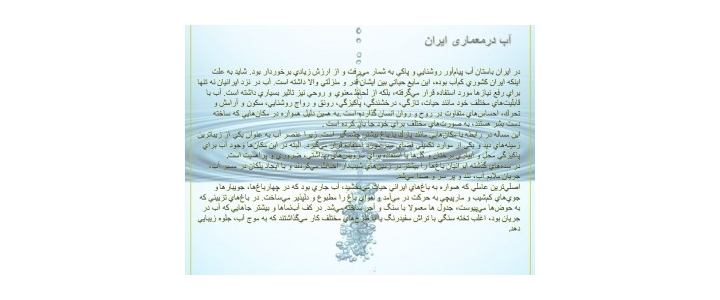 آب درمعماری ایران
در ایران باستان آب پیام‌آور روشنایی و پاکی به شمار می‌رفت و از ارزش زیادی برخوردار بود. شاید به علت
اینکه ایران کشوری کم‌آب بوده، این مایع حیاتی بین ایشان قدر و منزلتی والا داشته است. آب در نزد ایرانیان نه تنها
برای رفع نیازها مورد استفاده قرار می‌گرفته، بلکه از لحاظ معنوی و روحی نیز تاثیر بسیاری داشته است. آب با
قابلیت‌های مختلف خود مانند حیات، تازگی، درخشندگی، پاکیزگی، رونق و رواج روشنایی، سکون و آرامش و
تحرک، احساس‌های متفاوت در روح و روان انسان گذارده است. به همین دلیل همواره در مکان‌هایی که ساخته
دست بشر هستند، به صورت‌های مختلف برای خود جا باز کرده است.
این مساله در رابطه با مکان‌هایی مانند پارک یا باغ بیشتر چشمگیر است. زیرا عنصر آب به عنوان یکی از زیباترین
زمینه‌های دید و یکی از موارد تکمیلی فضای سبز مورد استفاده قرار می‌گیرد. البته در این مکان‌ها وجود آب برای
پاکیزگی محل و آبیاری درختان و گل‌ها یا استفاده برای سرویس‌های بهداشتی، ضروری و پراهمیت است.
در سده‌های گذشته ایرانیان باغ‌ها را بیشتر در زمین‌های شیب‌دار احداث می‌کردند و با ایجاد پلکان در مسیر آب،
جریان ملایم آب، تند و پر سر و صدا می‌شد.
اصلی‌ترین عاملی که همواره به باغ‌های ایرانی حیات می‌بخشید، آب جاری بود که در چهارباغ‌ها، جویبارها و
جوی‌های کم‌شیب و مارپیچی به حرکت در می‌آمد و هوای باغ را مطبوع و دلپذیر می‌ساخت. در باغ‌های تزیینی که
به حوض‌ها می‌پیوست، جدول ها معمولا با سنگ و آجر ساخته می‌شد. در کف آب‌نماها و بیشتر جاهایی که آب در
جریان بود، اغلب تخته سنگی با تراش سفیدرنگ یا با طرح‌های مختلف کار می‌گذاشتند که به موج آب، جلوه زیبایی
دهد.